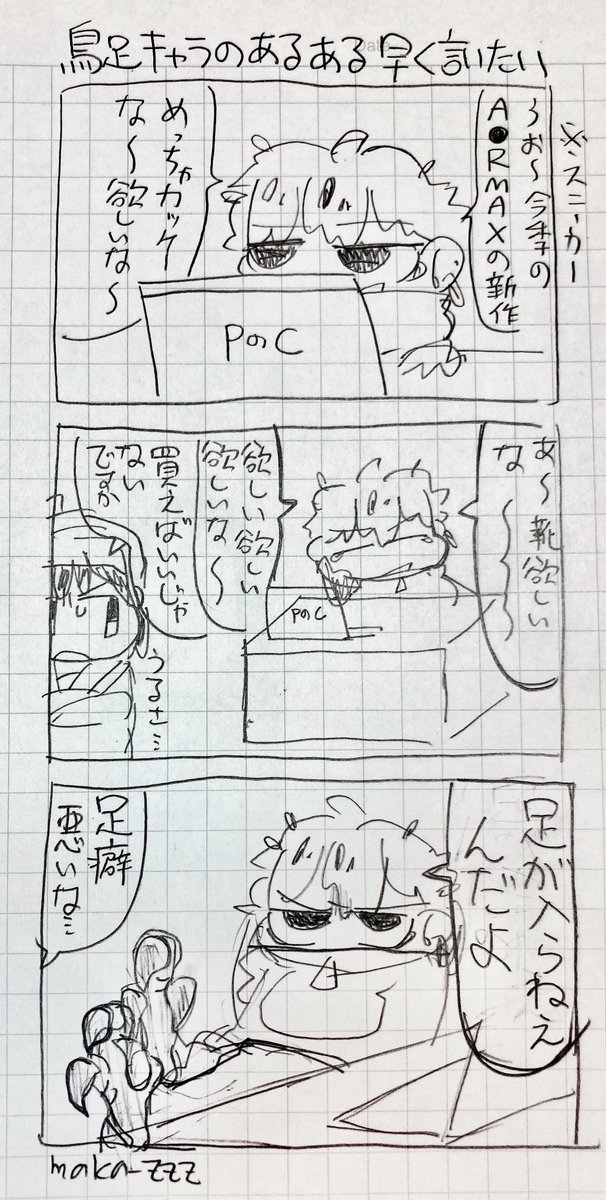 鳥足キャラのあるある早く言いたい
※スニーカー
〜お〜今季の
A●RMAXの新作
めっちゃカッケー
な〜欲しいな〜
PのC
あ〜靴欲しい
な〜〜〜
欲しい欲しい
欲しいな〜
PのC
買えばいいじゃ
ない
ですか
うるさ…
足が入らねえ
んだよ
足癖
悪いな…
maka-zzz